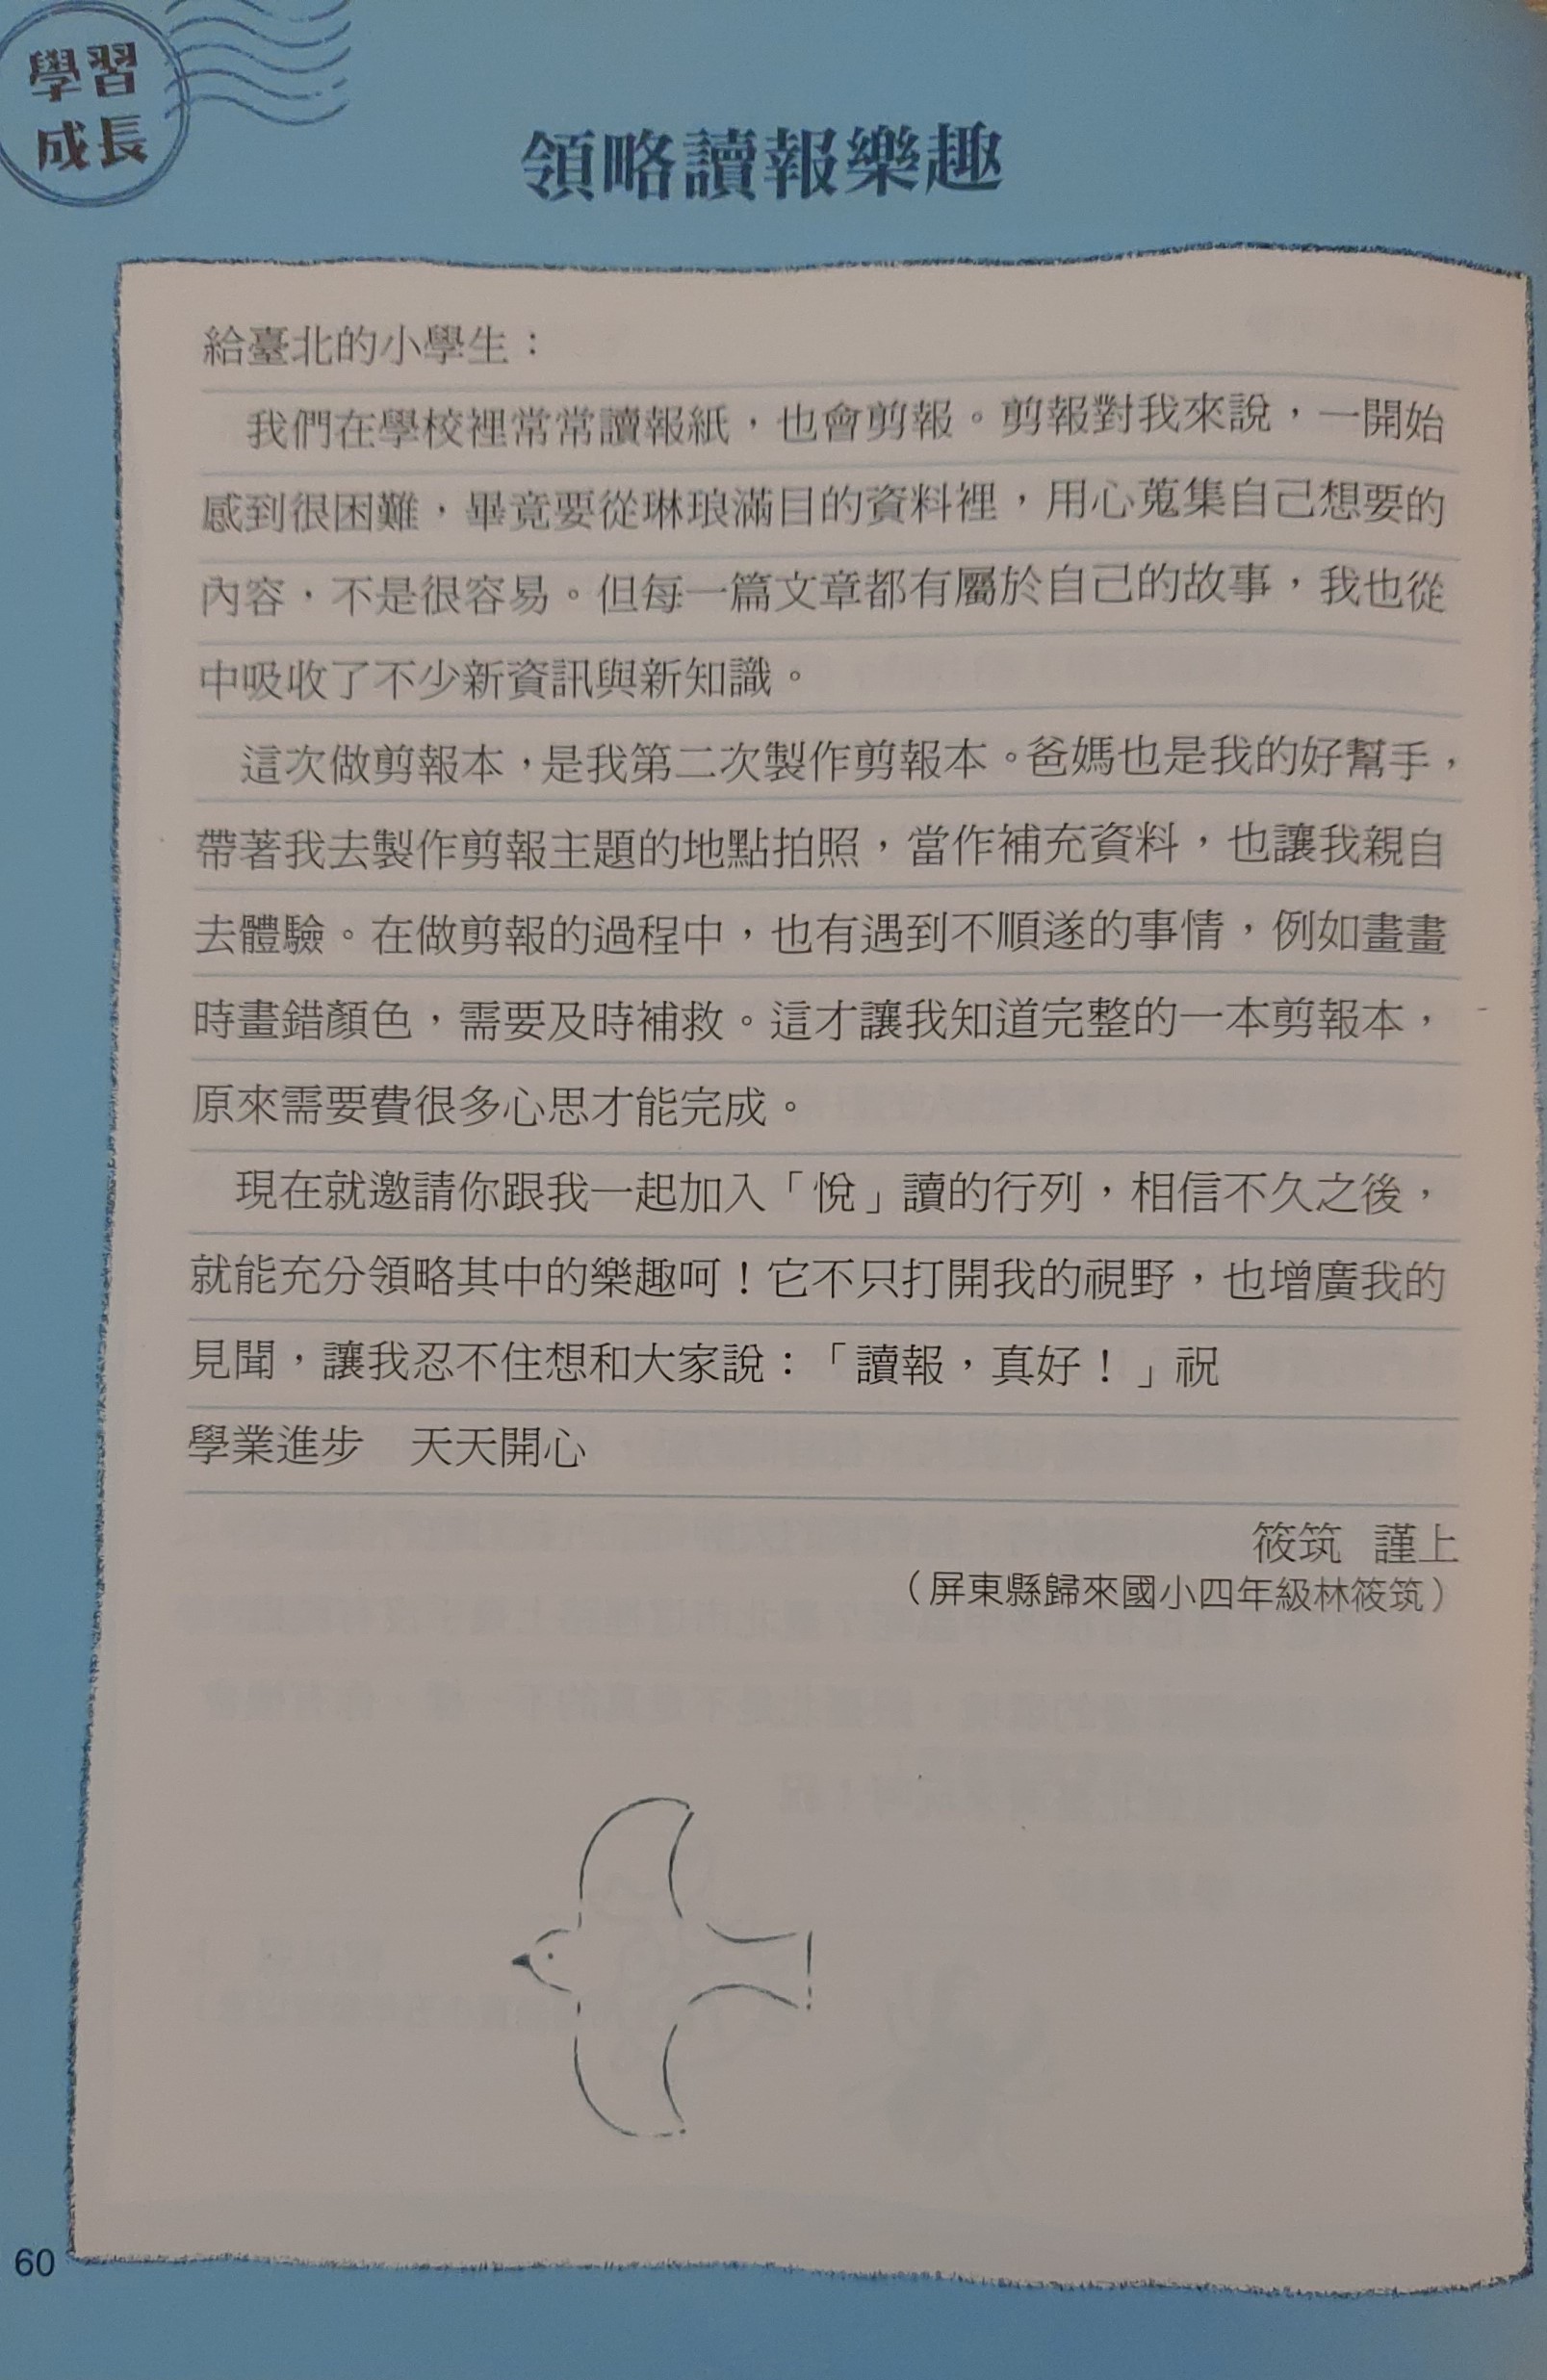 學習
成長
領略讀報樂趣
給臺北的小學生：
我們在學校裡常常讀報紙，也會剪報。剪報對我來說，一開始
感到很困難，畢竟要從琳琅滿目的資料裡，用心蒐集自己想要的
內容，不是很容易。但每一篇文章都有屬於自己的故事，我也從
中吸收了不少新資訊與新知識。
這次做剪報本，是我第二次製作剪報本。爸媽也是我的好幫手，
帶著我去製作剪報主題的地點拍照，當作補充資料，也讓我親自
去體驗。在做剪報的過程中，也有遇到不順遂的事情，例如畫畫
時畫錯顏色，需要及時補救。這才讓我知道完整的一本剪報本，
原來需要費很多心思才能完成。
現在就邀請你跟我一起加入「悅」讀的行列，相信不久之後，
就能充分領略其中的樂趣呵！它不只打開我的視野，也增廣我的
見聞，讓我忍不住想和大家說：「讀報，真好！」祝
學業進步　天天開心
筱筑　謹上
（屏東縣歸來國小四年級林筱筑）
60